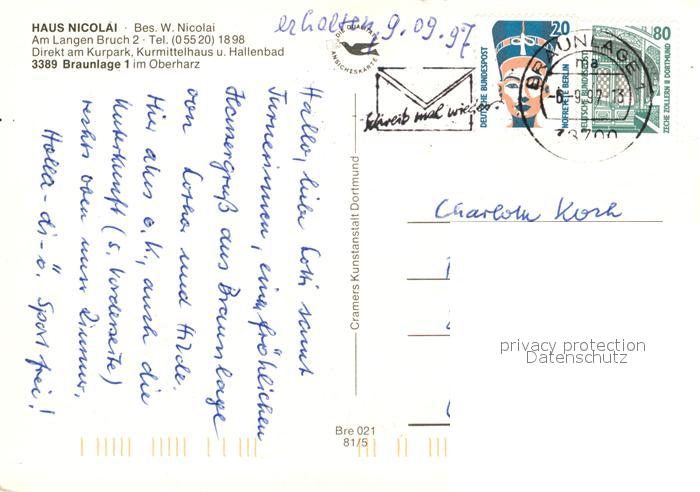 HAUS NICOLAI · Bes. W. Nicolai
Am Langen Bruch 2 · Tel. (0 55 20) 18 98
Direkt am Kurpark, Kurmittelhaus u. Hallenbad
3389 Braunlage 1 im Oberharz
erhalten 9.09.97
DIE QUALITÄTS
ANSICHTSKARTE
Schreib mal wieder
DEUTSCHE BUNDESPOST
20
NOFRETETE BERLIN
DEUTSCHE BUNDESPOST
80
ZECHE ZOLLERN II DORTMUND
BRAUNLAGE 1
ma
-8.-9.97.13
38700
Hallo, liebe Lotti samt
Turnerinnen, einen fröhlichen
Harzergruß aus Braunlage
von Lotha und Hilde.
Hier alles o.K., auch die
Unterkunft (s. Vorderseite)
rechts oben unser Zimmer.
Holla-di-ö. Sport frei!
Cramers Kunstanstalt Dortmund
Charlotte Koch
privacy protection
Datenschutz
Bre 021
81/5